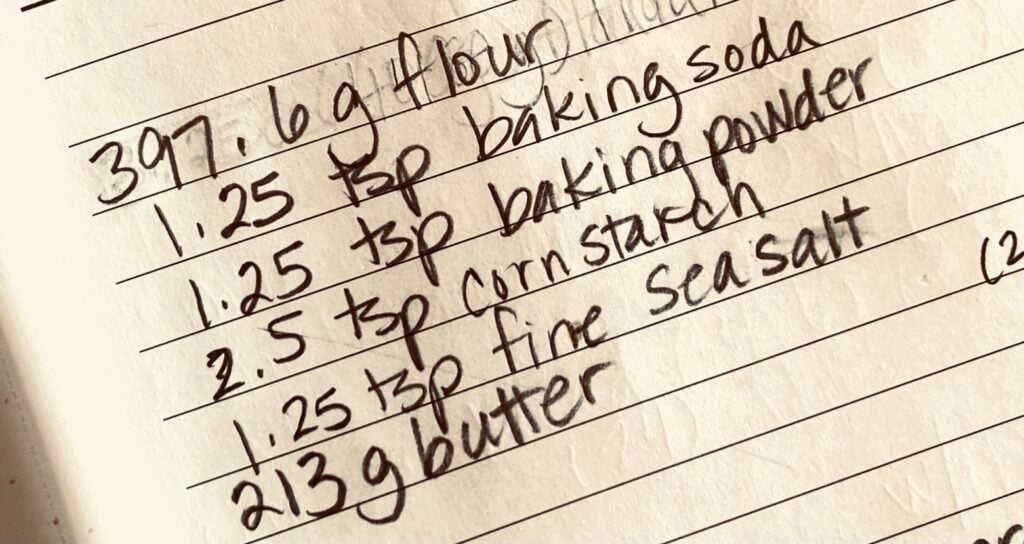 397.6 g flour
1.25 tsp baking soda
1.25 tsp baking powder
2.5 tsp corn starch
1.25 tsp fine sea salt
(2
213 g butter